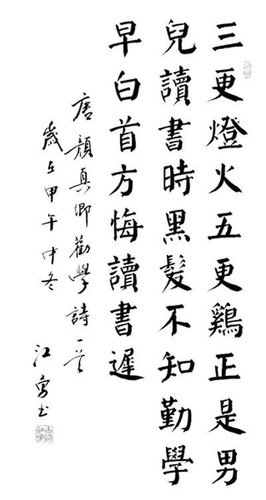 三更燈火五更鷄正是男
兒讀書時黑髮不知勤學
早白首方悔讀書遲
唐顔真卿勸學詩一首
歲在甲午仲冬
江勇书